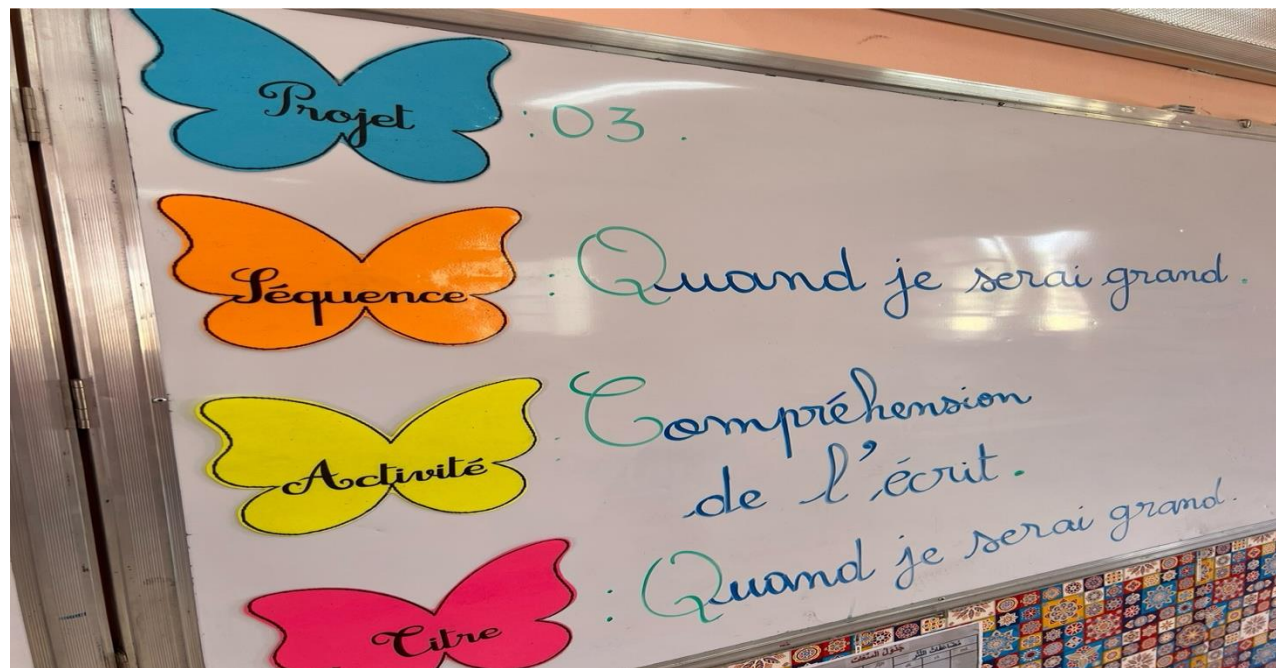 Projet : 03 .
Séquence : Quand je serai grand .
Activité : Compréhension
de l'écrit .
Titre : Quand je serai grand .
جدول الساعات